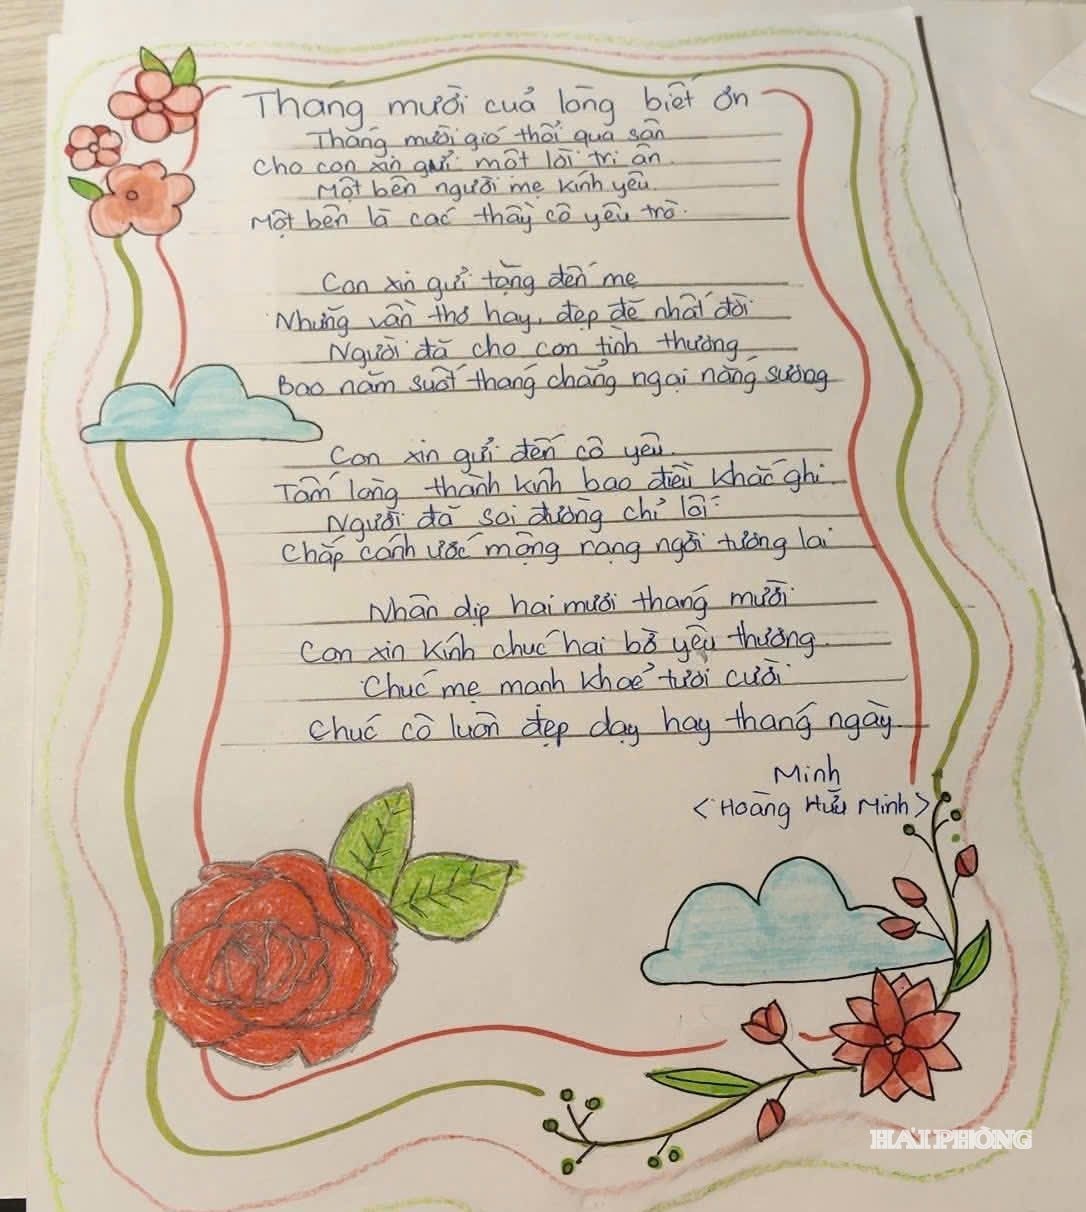 Tháng mười của lòng biết ơn
Tháng mười gió thổi qua sân
Cho con xin gửi một lời tri ân
Một bên người mẹ kính yêu
Một bên là các thầy cô yêu trò.
Con xin gửi tặng đến mẹ
Những vần thơ hay, đẹp đẽ nhất đời
Người đã cho con tình thương
Bao năm suốt tháng chẳng ngại nắng sương
Con xin gửi đến cô yêu.
Tấm lòng thành kính bao điều khắc ghi.
Người đã soi đường chỉ lối
Chắp cánh ước mộng rạng ngời tương lai
Nhân dịp hai mươi tháng mười
Con xin kính chúc hai bờ yêu thương
Chúc mẹ mạnh khoẻ tươi cười
Chúc cô luôn đẹp dạy hay tháng ngày.
Minh
<Hoàng Hữu Minh>
HẢI PHÒNG